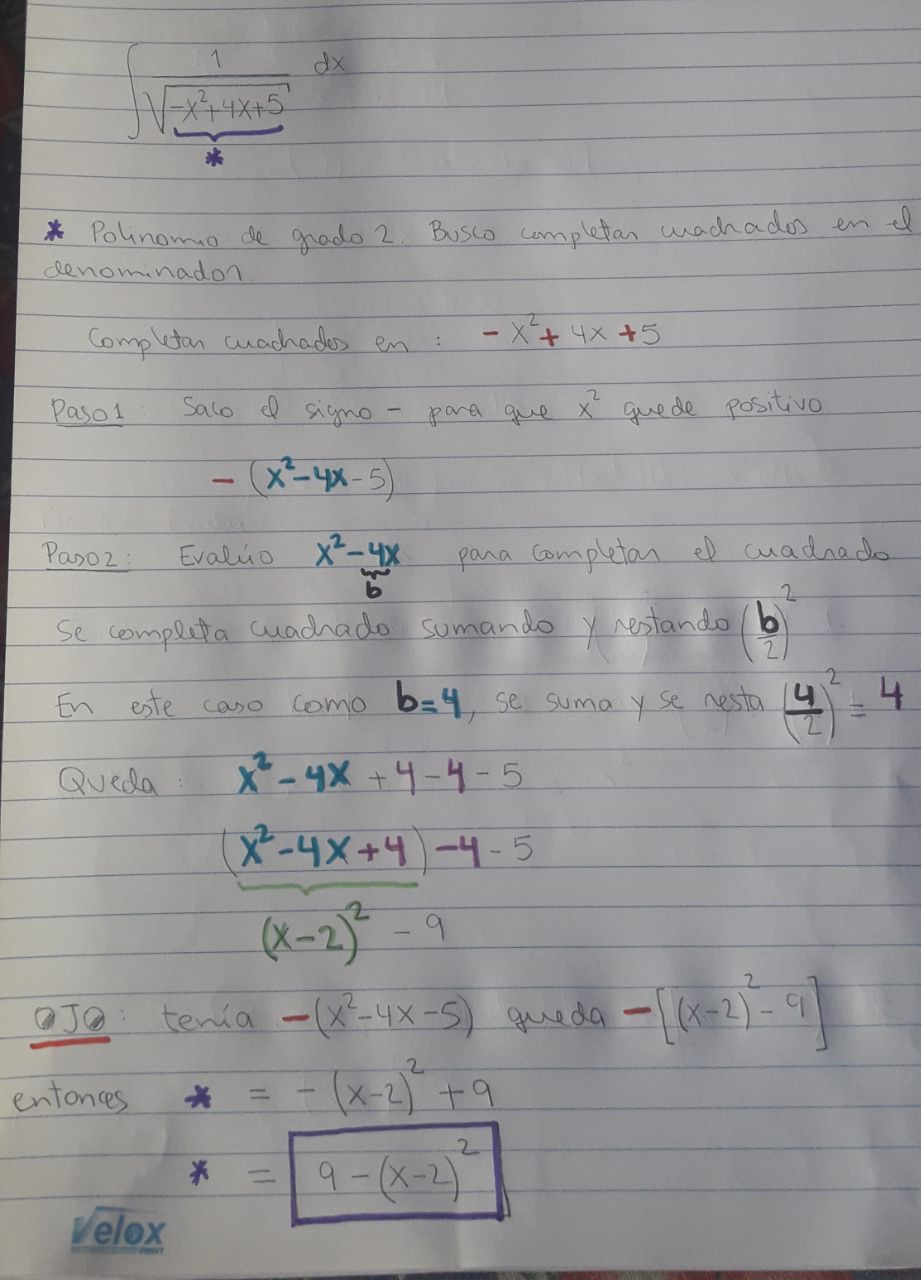 ∫ 1/√(-x²+4x+5) dx
*
* Polinomio de grado 2. Busco completar cuadrados en el
denominador.
Completar cuadrados en : - x² + 4x + 5
Paso 1 : Saco el signo - para que x² quede positivo
- (x² - 4x - 5)
Paso 2 : Evalúo x² - 4x para completar el cuadrado
b
Se completa cuadrado sumando y restando (b/2)²
En este caso como b = 4, se suma y se resta (4/2)² = 4
Queda : x² - 4x + 4 - 4 - 5
(x² - 4x + 4) - 4 - 5
(x-2)² - 9
OJO : tenía -(x² - 4x - 5) queda -[(x-2)² - 9]
entonces * = - (x-2)² + 9
* = 9 - (x-2)²
Velox
PRINT